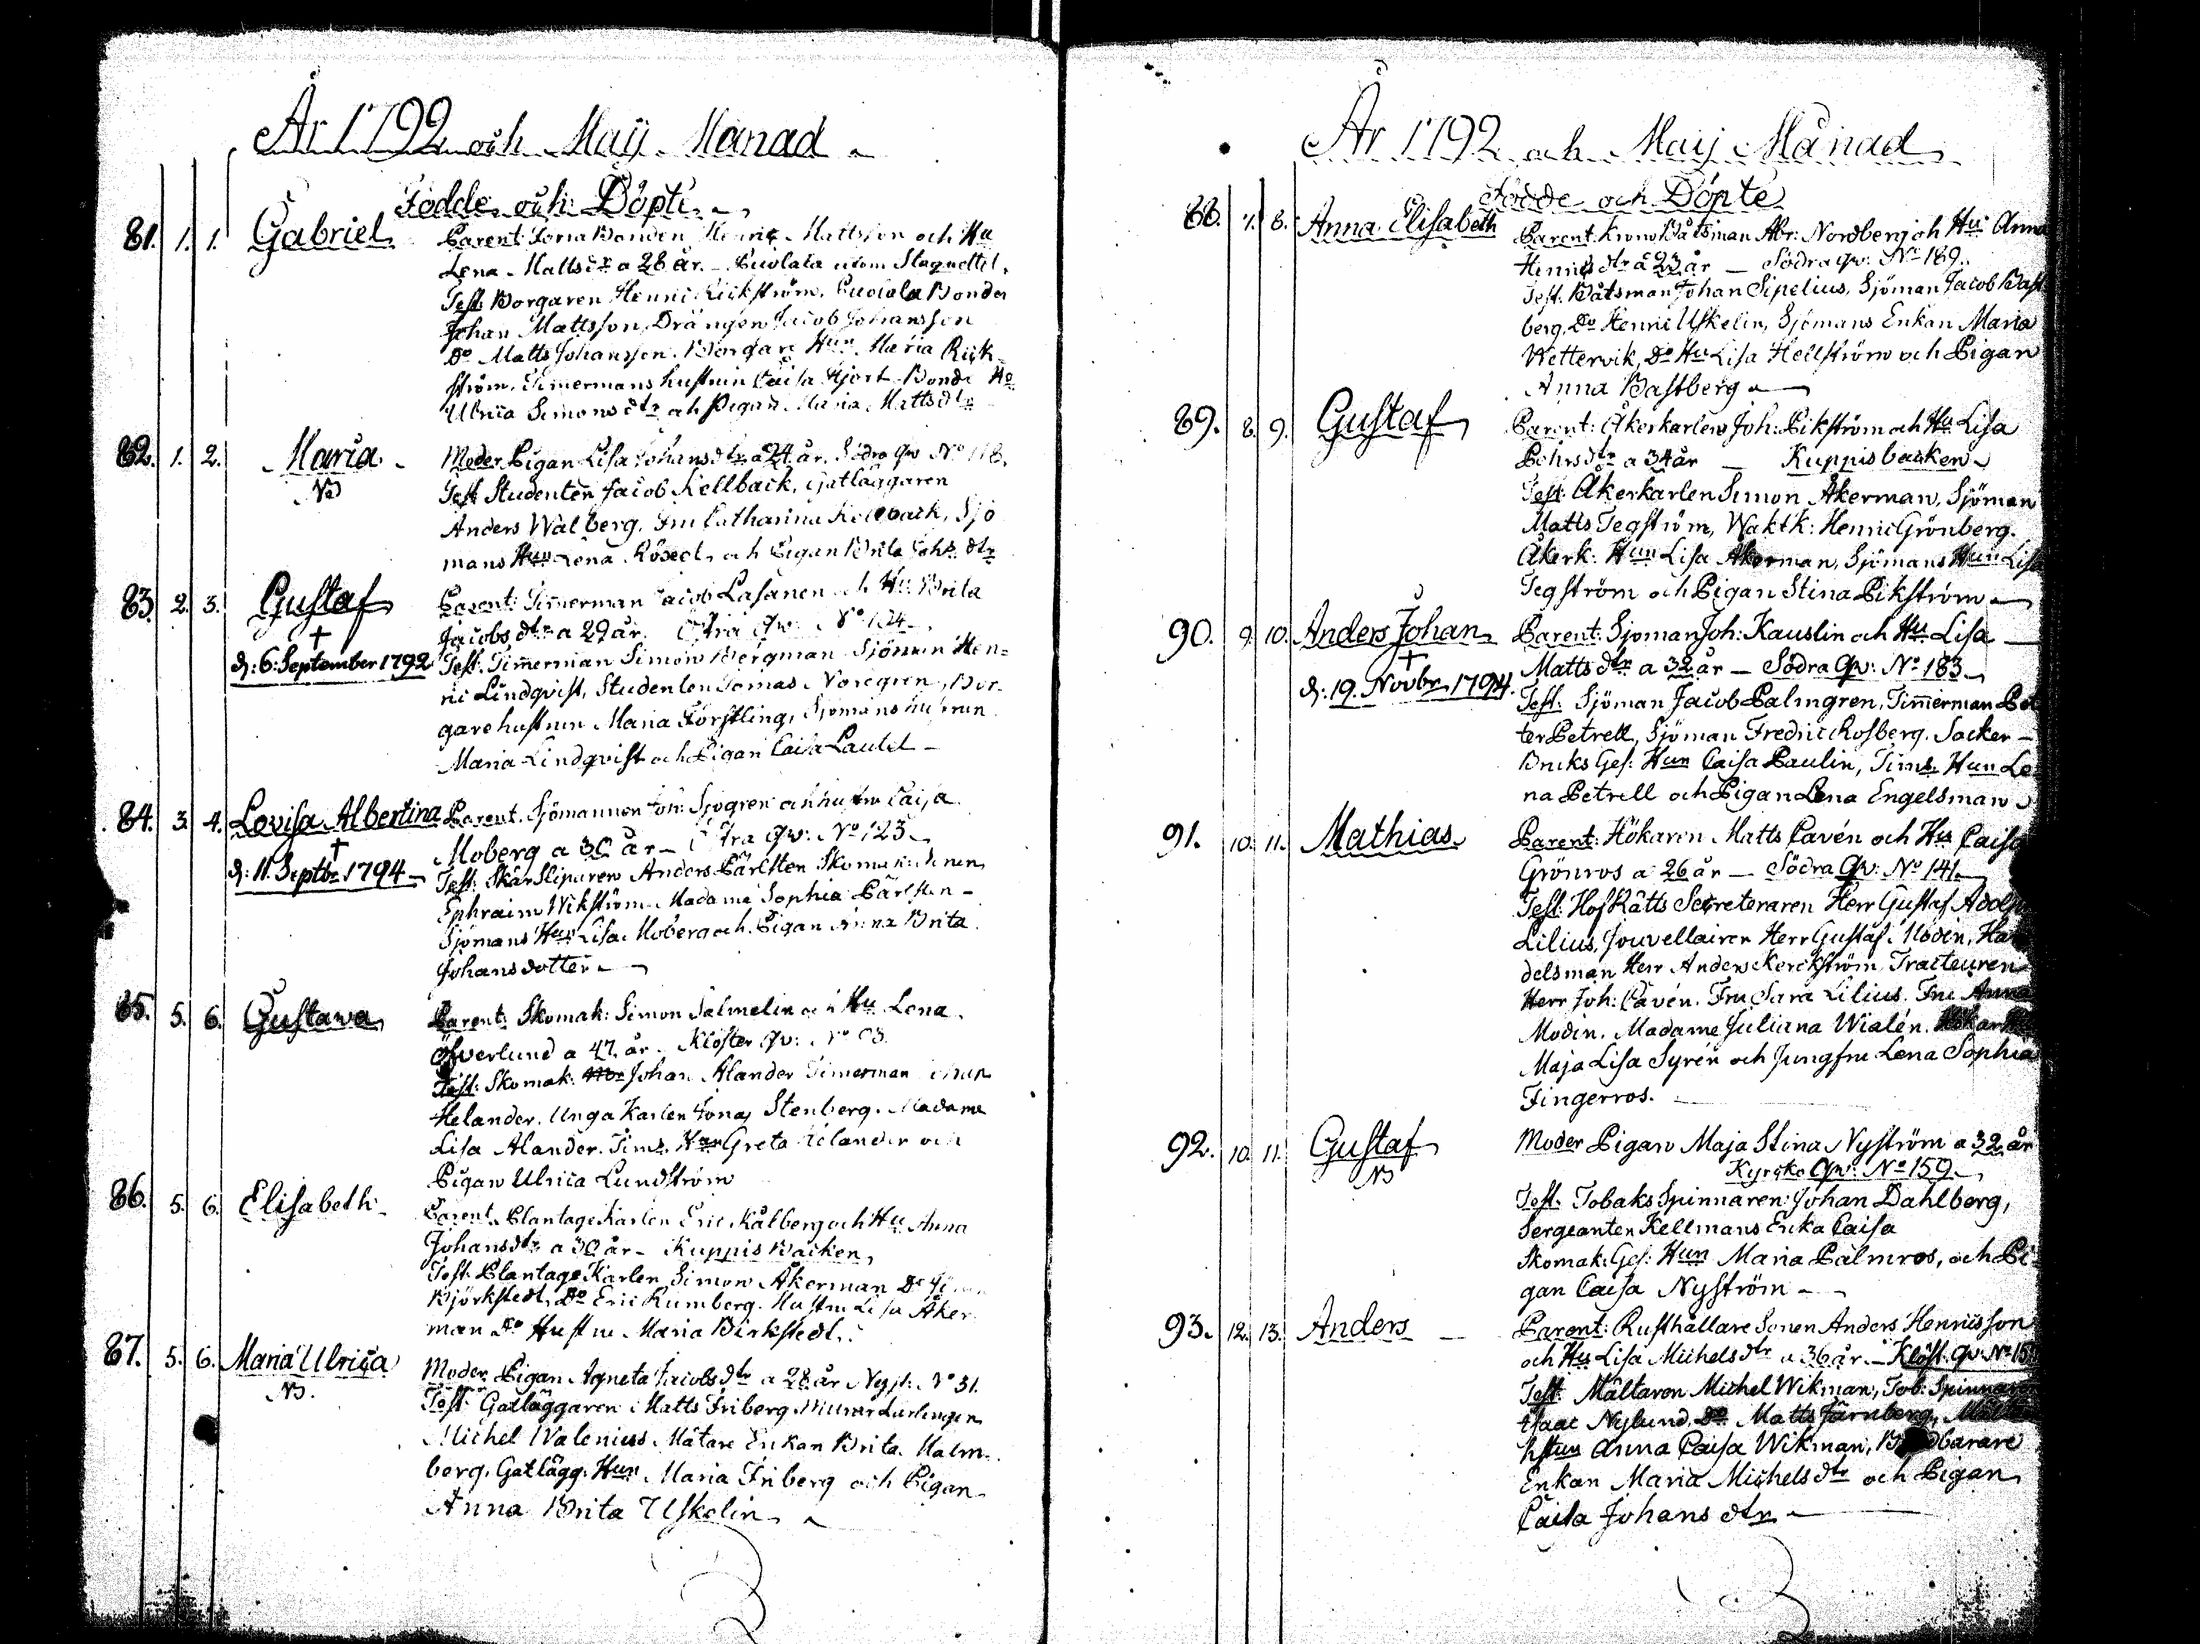 År 1792 och Maij Månad
Födde och Döpte
81. 1. 1. Gabriel Parent: Bonden Henric Mattsson och Hu
Lena Mattsdtr a 28 år.
Test. Borgaren Henric Rickström, Bonden
Johan Mattsson, Drängen Jacob Johansson
Do Matts Johansson. Borgare Hun Maria Rick-
ström. Timermans hustrun Caisa Hjort Bonde Ho
Ulrica Simonsdtr och Pigan Maria Mattsdtr
82. 1. 2. Maria Moder Pigan Lisa Johansdtr a 24 år. Södra qv No 118.
NB Test Studenten Jacob Kellback, Gatläggaren
Anders Walberg, Fru Catharina Kellback, Sjö
mans Hun Lena och Pigan Brita Johs dtr
83. 2. 3. Gustaf Parent: Timerman Jacob Lasanen och Hu: Brita
Jacobsdtr a 29 år. Östra Qv: No 124
† d: 6: September 1792 Test: Timerman Simon Bergman Sjöman Hen=
ric Lindqvist, Studenten Tomas Noregren, Bor-
gare hustrun Maria Förstling, Sjömans hustrun
Maria Lindqvist och Pigan Caisa Lautel
84. 3. 4. Lovisa Albertina Parent. Sjömannen Joh: Sjögren och hustru Caisa
Moberg a 30 år - Östra Qv: No 123
† d: 11. Septbr 1794 Test: Skärsliparen Anders Pärlsten
Ephraim Wikström Madame Sophia Pärlsten -
Sjömans Hun Lisa Moberg och Pigan Anna Brita
Johansdotter
85. 5. 6. Gustava Parent: Skomak: Simon Salmelin och Hu Lena
Öfverlund a 47 år. Kloster Qv:
Test: Skomak: Johan Alander Timerman
Helander. Unga Karlen Jonas Stenberg. Madame
Lisa Alander. Tims. Hun Greta Helander och
Pigan Ulrica Lundström
86. 5. 6. Elisabeth Parent. Plantage Karlen Eric Kålberg och Hu Anna
Johansdtr a 30 år - Kuppis Backen
Test. Plantage Karlen Simon Åkerman Do
Björkstedt, Do Eric Rumberg. Hustru Lisa Åker
man Do Hustru Maria Birkstedt.
87. 5. 6. Maria Ulrica Moder Pigan Agneta Jacobsdtr a 28 år No 31.
NB. Test: Gatläggaren Matts Friberg
Michel Walenius Mätare Enkan Brita Malm-
berg, Gatlägg: Hun Maria Friberg och Pigan
Anna Brita Uskelin
År 1792 och Maij Månad
Födde och Döpte
88. 7. 8. Anna Elisabeth Parent. Krono Båtsman Abr: Nordberg och Hu: Anna
Henricsdtr a 23 år — Södra qv: No 189.
Test. Båtsman Johan Sipelius, Sjöman Jacob Bast
berg, Do Henric Uskelin, Sjömans Enkan Maria
Wettervik, Do Hu Lisa Hellström och Pigan
Anna Bastberg
89. 8. 9. Gustaf Parent: Åkerkarlen Joh: Pikström och Hu Lisa
Pehrsdtr a 34 år — Kuppis backen
Test: Åkerkarlen Simon Åkerman, Sjöman
Matts Tegström, Waktk: Henric Grönberg.
Åkerk: Hun Lisa Åkerman, Sjömans Hun Lisa
Tegström och Pigan Stina Pikström
90. 9. 10. Anders Johan Parent: Sjöman Joh: Kauslin och Hu Lisa
Mattsdtr a 32 år — Södra Qv: No 183
† d: 19. Novbr 1794. Test. Sjöman Jacob Palmgren, Timerman Pet
ter Petrell, Sjöman Fredric Rosberg. Socker-
Bruks Ges: Hun Caisa Paulin, Tims. Hun Le-
na Petrell och Pigan Lena Engelsman
91. 10. 11. Mathias Parent: Hökaren Matts Cavén och Hu Caisa
Grönros a 26 år — Södra Qv: No 141.
Test: HofRätts Secreteraren Herr Gustaf Adolf
Lilius, Jouvelairen Herr Gustaf Modin, Han
delsman Herr Anders Kerckström, Tracteuren
Herr Joh: Cavén. Fru Sara Lilius. Fru Anna
Modin. Madame Juliana Wialén.
Maja Lisa Syrén och Jungfru Lena Sophia
Fingerros.
92. 10. 11. Gustaf Moder Pigan Maja Stina Nyström a 32 år
NB Kyrcko Qv: No 159
Test. Tobaks Spinnaren Johan Dahlberg,
Sergeanten Kellmans Enka Caisa
Skomak: Ges: Hun Maria Palmros, och Pi-
gan Caisa Nyström
93. 12. 13. Anders Parent: Rusthållare Sonen Anders Henricsson
och Hu Lisa Michelsdtr a 36 år. — Klöst: qv: No 15
Test. Mältaren Michel Wikman, Tob: Spinnaren
Isaac Nylund, Do Matts Järnberg,
hstun Anna Caisa Wikman,
Enkan Maria Michelsdtr och Pigan
Caisa Johansdtr